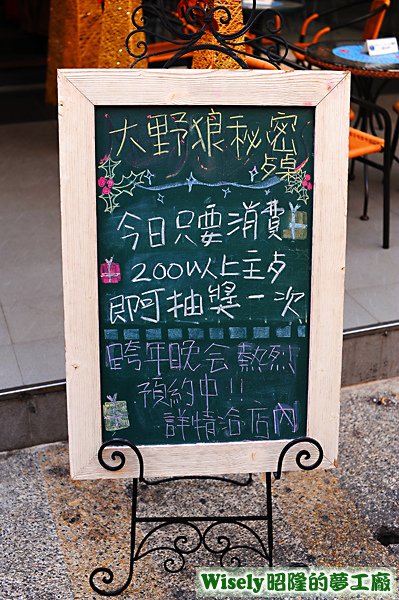 大野狼秘密
歺桌
今日只要消費
200以上主歺
即可抽獎一次
跨年晚会熱烈
預約中!!
詳情洽店內
Wisely昭隆的夢工廠